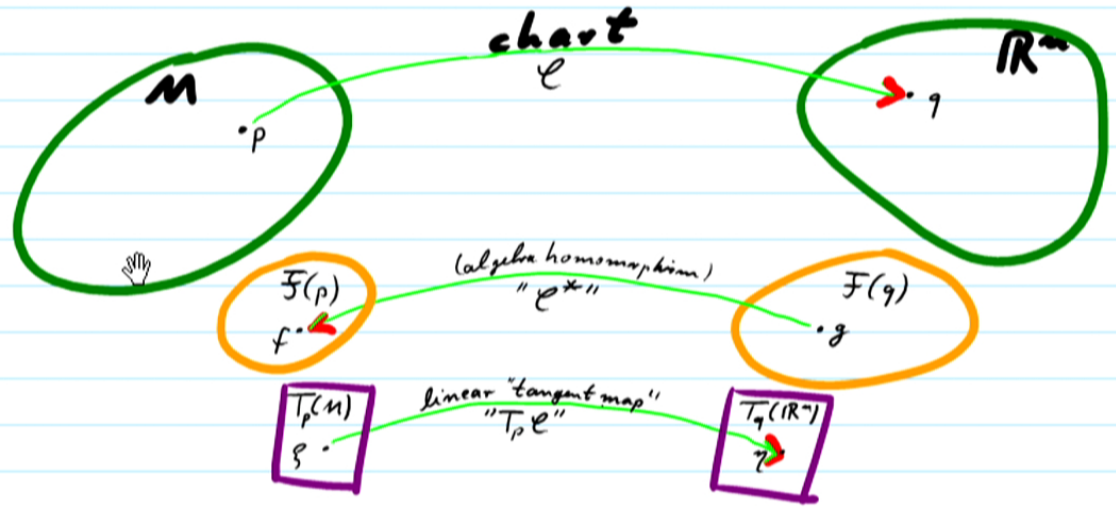 chart
M
ℝⁿ
φ
·p
·q
(algebra homomorphism)
"φ*"
F(p)
F(q)
f·
·g
linear "tangent map"
"Tₚφ"
Tₚ(M)
T_q(ℝⁿ)
ξ ·
η